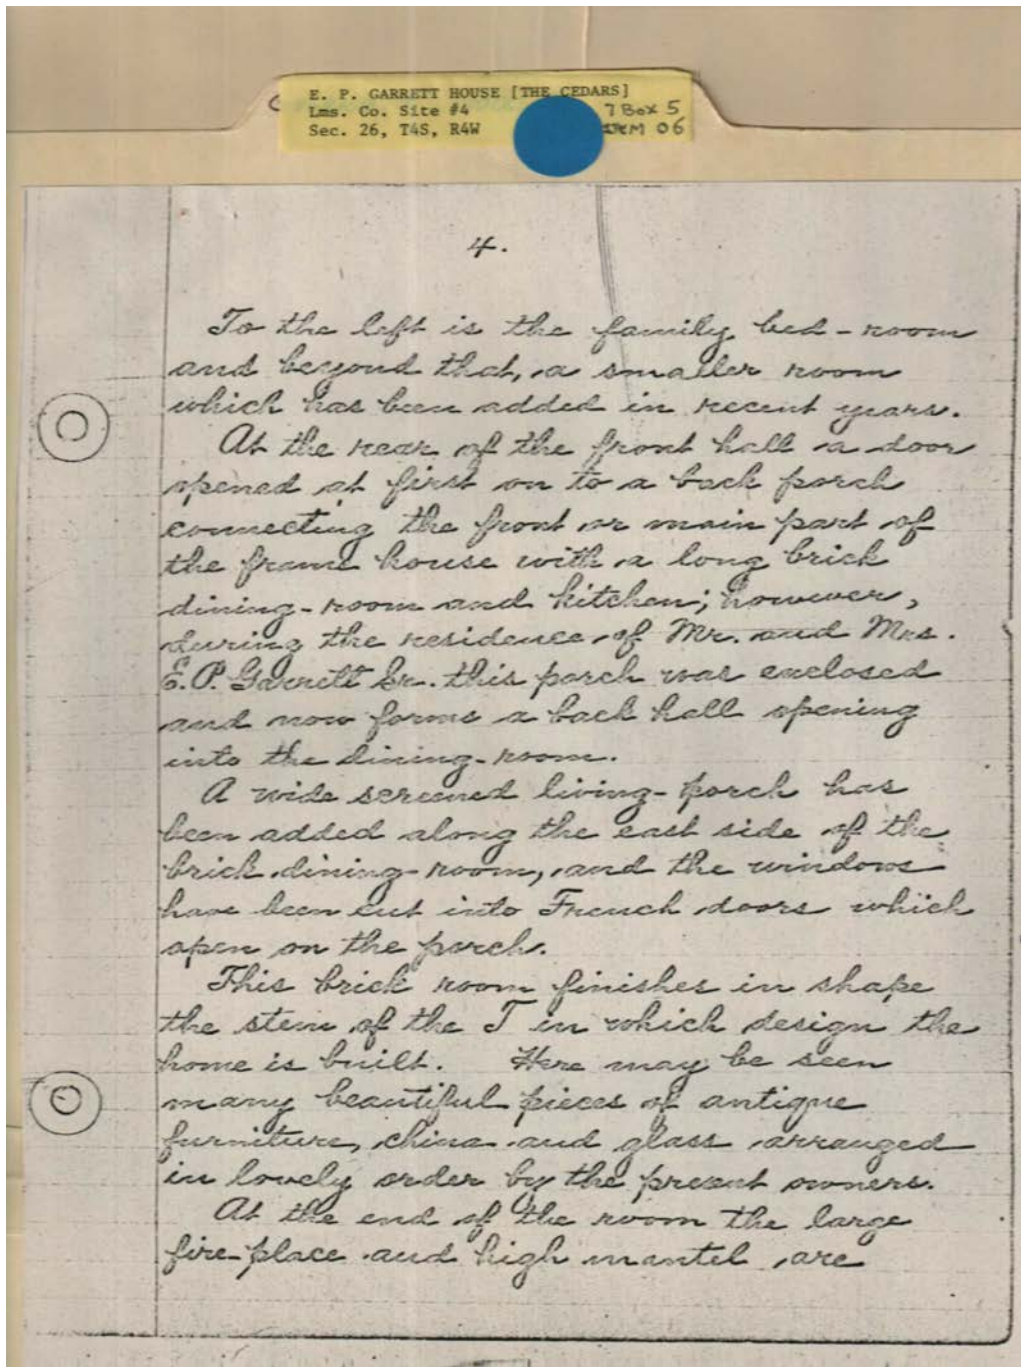 E. P. GARRETT HOUSE [THE CEDARS]
Lms. Co. Site #4 7 Box 5
Sec. 26, T4S, R4W 06
4.
To the left is the family bed-room
and beyond that, a smaller room
which has been added in recent years.
At the rear of the front hall a door
opened at first on to a back porch
connecting the front or main part of
the frame house with a long brick
dining-room and kitchen; however,
during the residence of Mr. and Mrs.
E.P. Garrett Sr. this porch was enclosed
and now forms a back hall opening
into the dining-room.
A wide screened living-porch has
been added along the east side of the
brick dining-room, and the windows
have been cut into French doors which
open on the porch.
This brick room finishes in shape
the stem of the T in which design the
home is built. Here may be seen
many beautiful pieces of antique
furniture, china and glass arranged
in lovely order by the present owners.
At the end of the room the large
fire-place and high mantel are